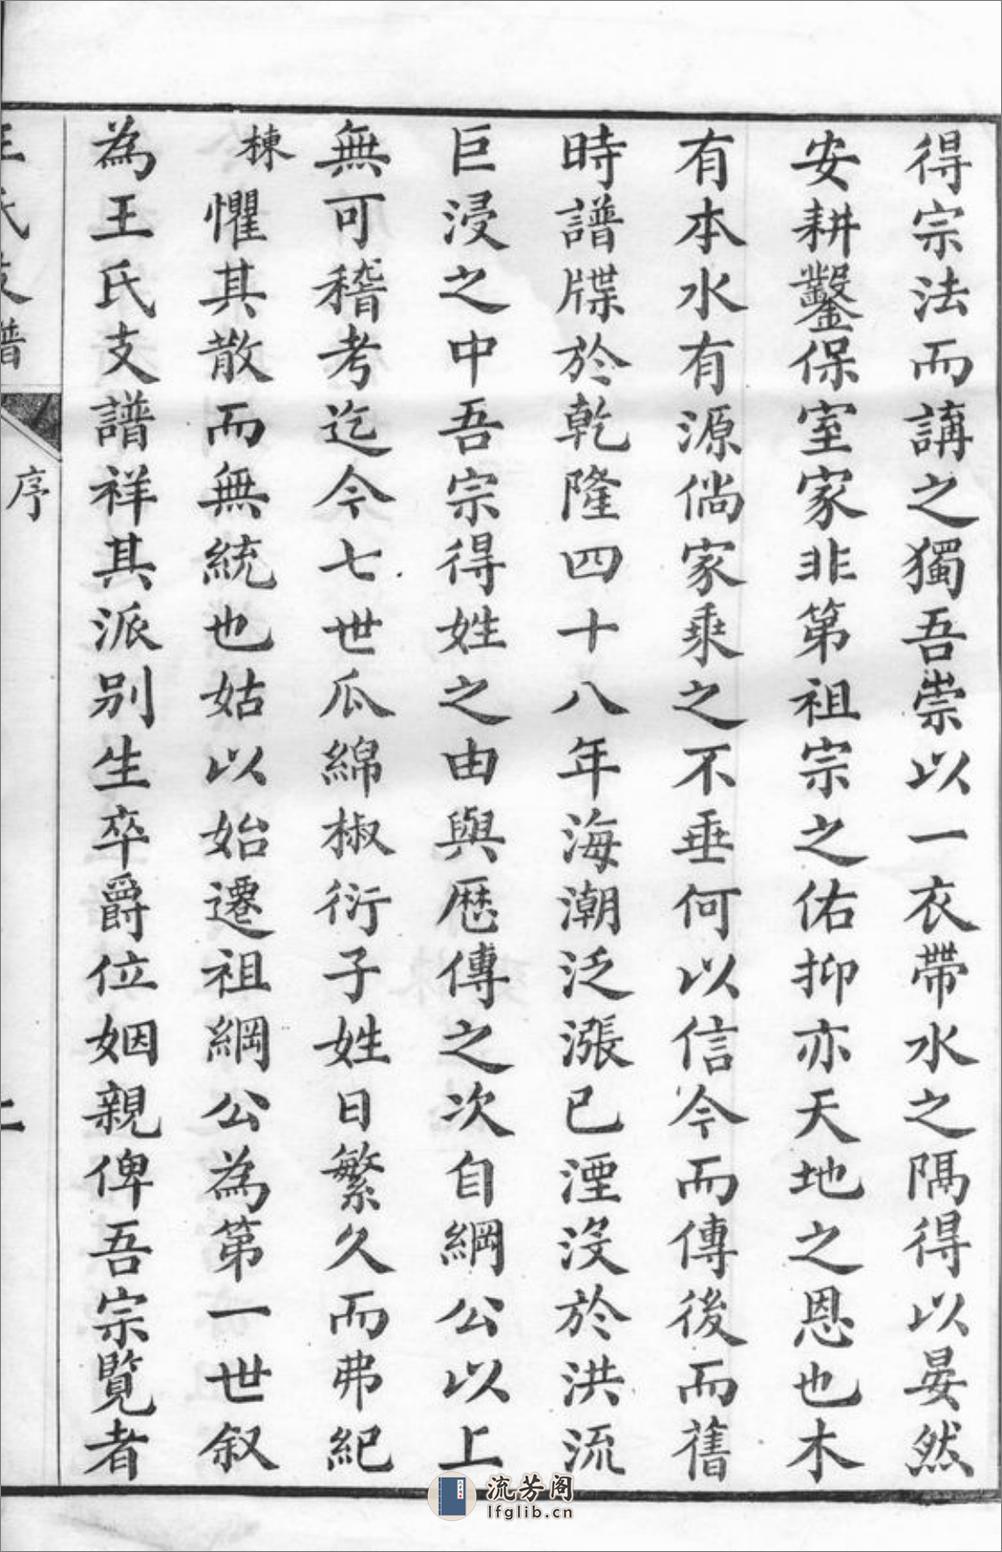 得宗法而講之獨吾崇以一衣帶水之隔得以晏然
安耕鑿保室家非第祖宗之佑抑亦天地之恩也木
有本水有源倘家乘之不垂何以信今而傳後而舊
時譜牒於乾隆四十八年海潮泛漲已湮沒於洪流
巨浸之中吾宗得姓之由與歷傳之次自綱公以上
無可稽考迄今七世瓜綿椒衍子姓日繁久而弗紀
棟懼其散而無統也姑以始遷祖綱公為第一世叙
為王氏支譜祥其派別生卒爵位姻親俾吾宗覽者
王氏支譜
序
流芳阁
lfglib.cn